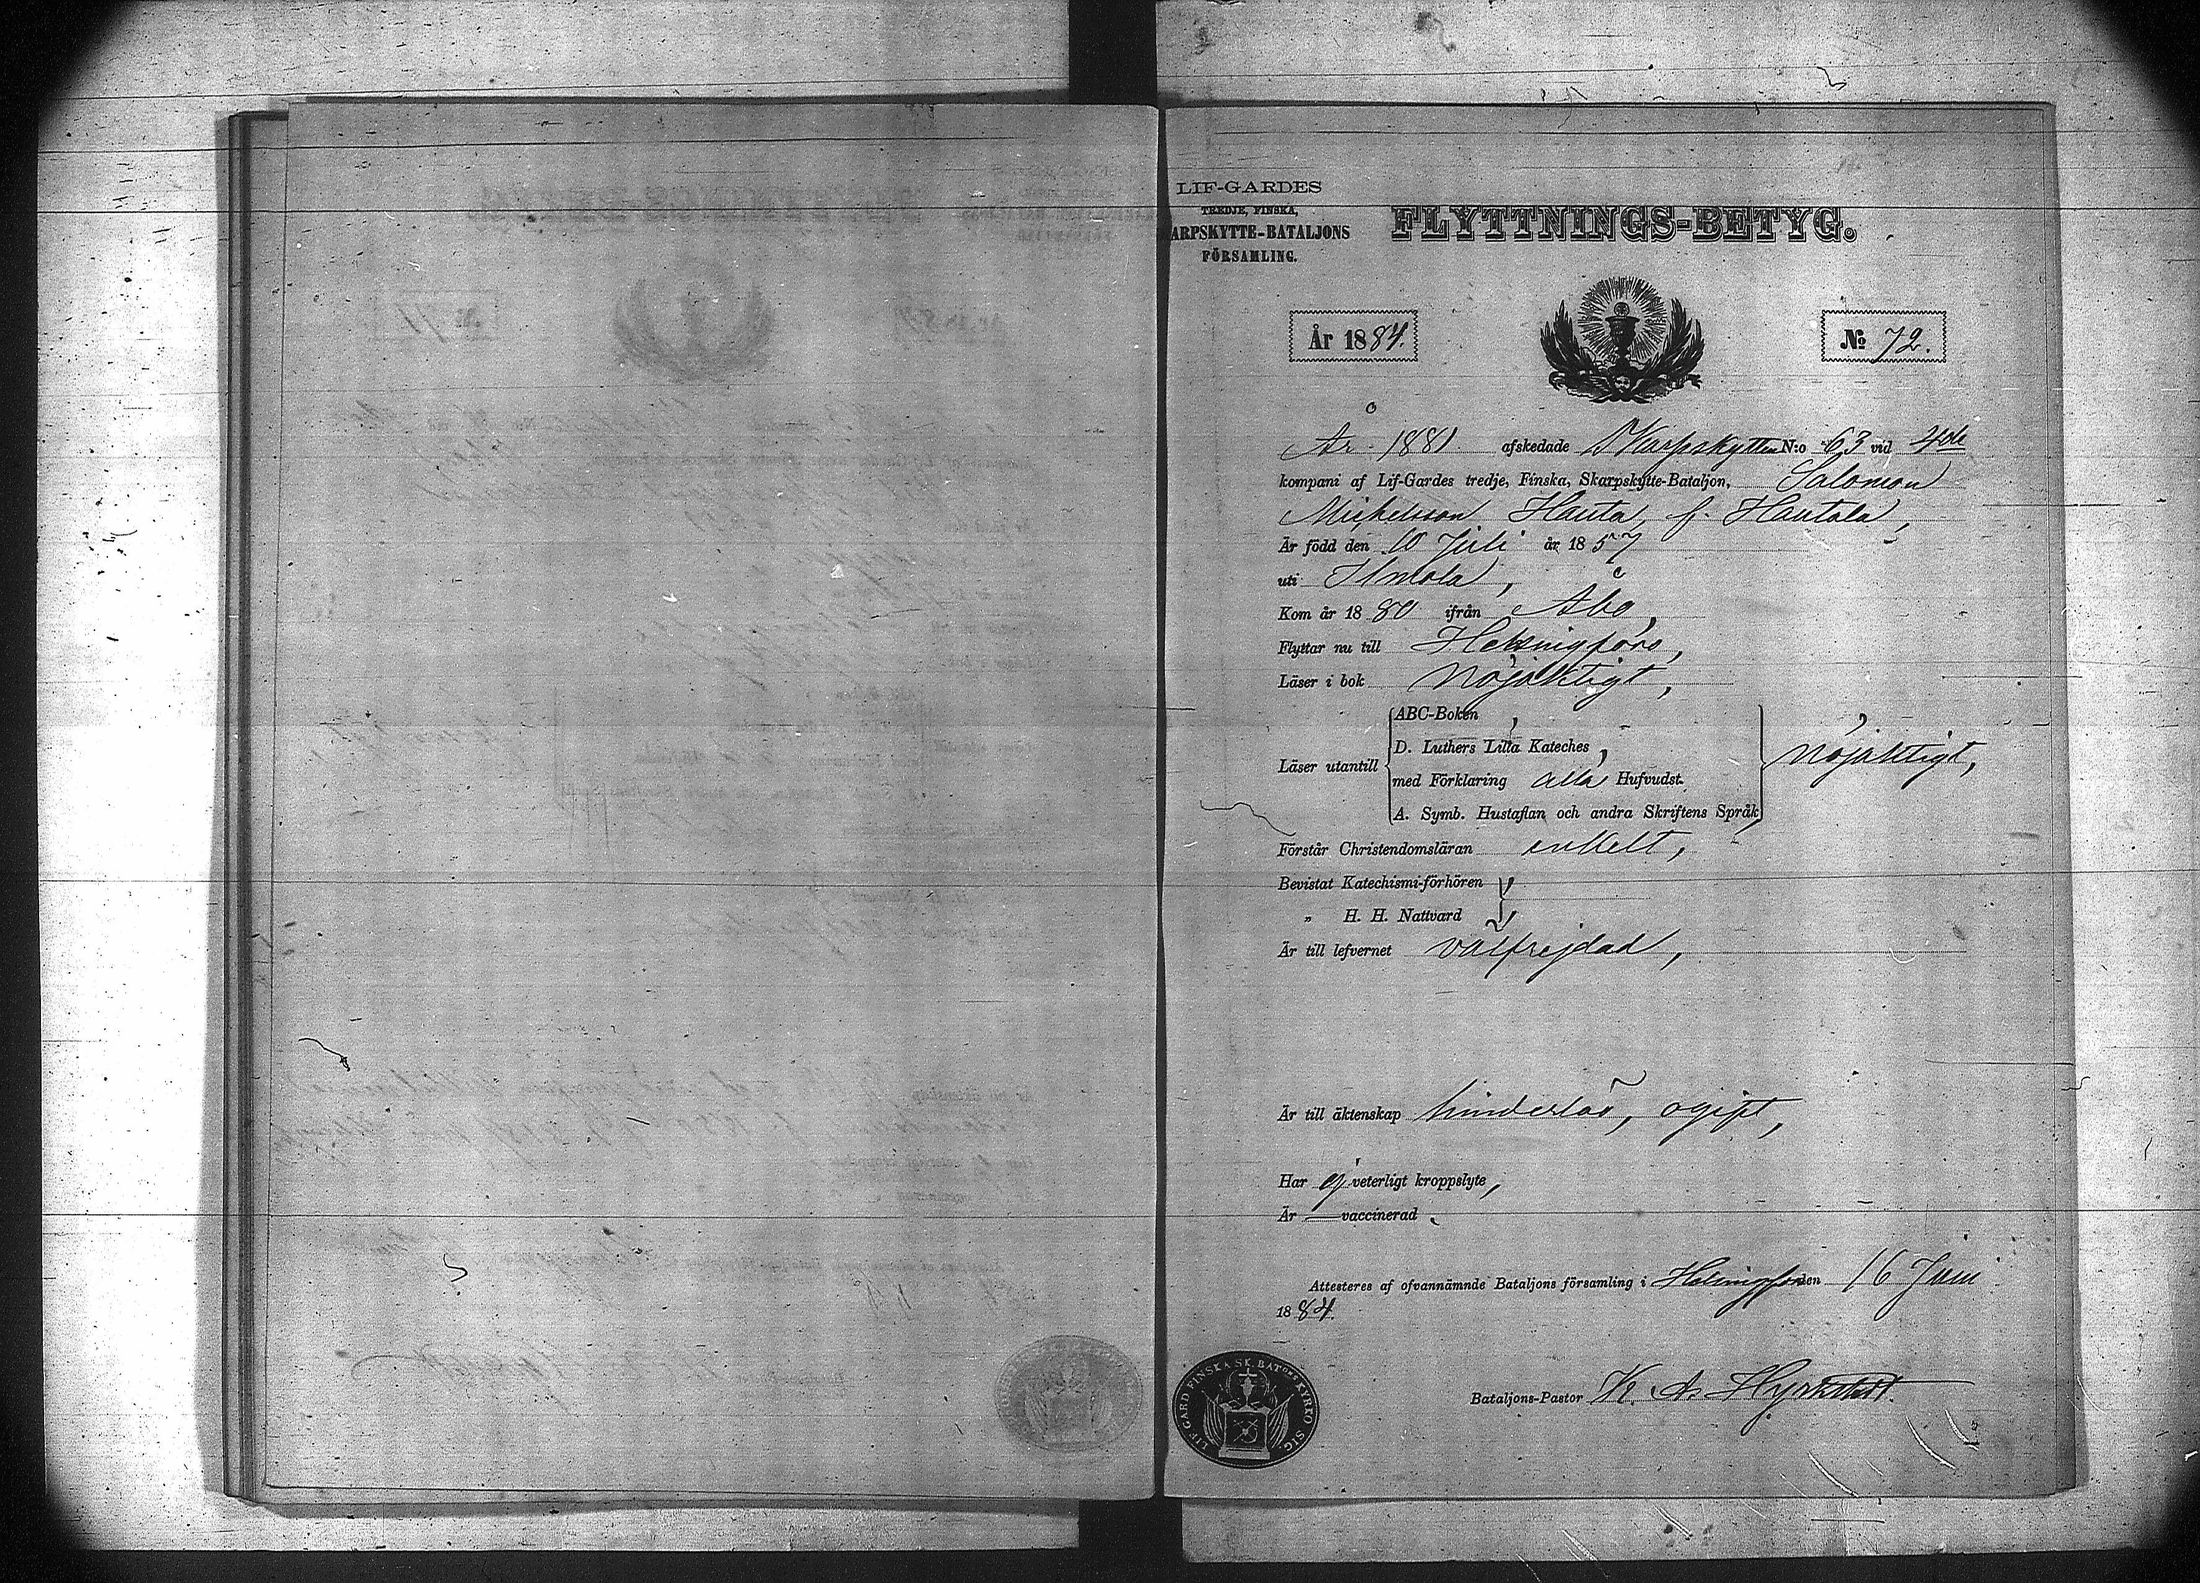 LIF-GARDES
TREDJE, FINSKA,
ARPSKYTTE-BATALJONS
FÖRSAMLING.
FLYTTNINGS-BETYG.
År 1884.
№ 72.
År 1881 afskedade Skarpskytten N:o 63 vid 4de
kompani af Lif-Gardes tredje, Finska, Skarpskytte-Bataljon, Salomon
Mickelsson Hauta, f. Hautala,
Är född den 10 Juli år 1857
uti Ilmola,
Kom år 1880 ifrån Åbo,
Flyttar nu till Helsingfors,
Läser i bok nöjaktigt,
Läser utantill
ABC-Boken,
D. Luthers Lilla Kateches,
med Förklaring alla Hufvudst.
A. Symb. Hustaflan och andra Skriftens Språk,
nöjaktigt,
Förstår Christendomsläran enkelt,
Bevistat Katechismi-förhören
„ H. H. Nattvard
Är till lefvernet välfrejdad,
Är till äktenskap hinderlös, ogift,
Har ej veterligt kroppslyte,
Är — vaccinerad.
Attesteres af ofvannämnde Bataljons församling i Helsingfors den 16 Juni
1884.
Bataljons-Pastor K. A. Hyrkstedt.
LIF GARD FINSKA SK. BATONS KYRKO SIG.